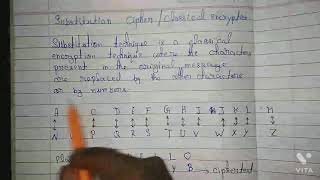 Substitution Cipher / Classical encryption
Substitution technique is a classical
encryption technique where the characters
present in the original message
are replaced by the other characters
or by numbers.
A C D E F G H I J K L M
N P Q R S T U V W X Y Z
L O
Y B → 
VITA